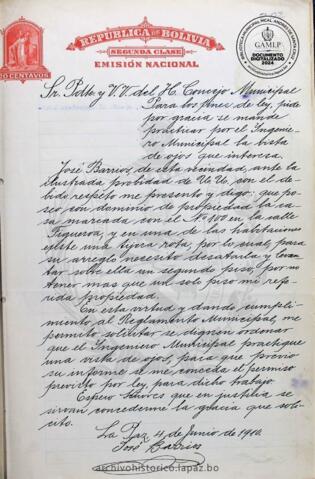 REPÚBLICA DE BOLIVIA
SEGUNDA CLASE
EMISIÓN NACIONAL
20 CENTAVOS
GAMLP
DOCUMENTO
DIGITALIZADO
2024
Sr. Pdte y V.V. del H. Concejo Municipal
Para los fines de ley, pide
por gracia se mande
practicar por el Ingenie-
ro Municipal la vista
de ojos que interesa.
José Barrios, de esta vecindad, ante la
ilustrada probidad de Ud. Ud. con el de-
bido respeto me presento y digo: que po-
seo con dominio de propiedad la ca-
sa marcada con el Nº 108 en la calle
Figueroa, y en una de las habitaciones
existe una tijera rota, por lo cual, para
su arreglo necesito desatarla y levan
tar sobre ella un segundo piso, por no
tener mas que un solo piso mi refe-
rida propiedad.
En esta virtud y dando cumpli-
miento al Reglamento Municipal, me
permito solicitar se dignen ordenar
que el Ingeniero Municipal practique
una vista de ojos, para que previo
su informe se me conceda el permiso
previsto por ley, para dicho trabajo.
Espero Señores que en justicia se
sirvan concederme la gracia que soli-
cito.
La Paz, 4 de Junio de 1910.
José Barrios
archivohistorico.lapaz.bo